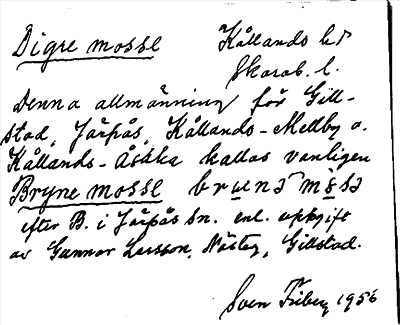 Digre mosse Kållands hd
Skarab. l.
Denna allmänning för Gill-
stad, Järpås, Kållands-Mellby o.
Kållands-Åsaka kallas vanligen
Bryne mosse
efter B. i Järpås sn. enl. uppgift
av Gunnar Larsson, Näste, Gillstad.
Sven Friberg 1956